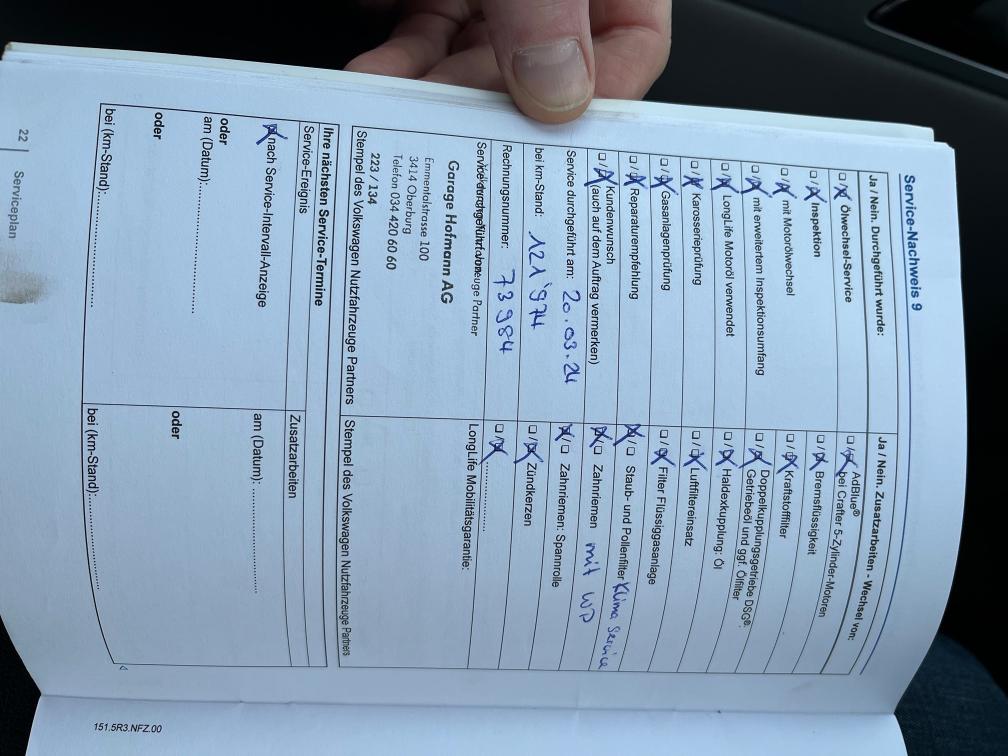 Service-Nachweis 9
Ja / Nein. Durchgeführt wurde:
☐ / ☒ Ölwechsel-Service
☐ / ☒ Inspektion
☐ / ☒ mit Motorölwechsel
☐ / ☒ mit erweitertem Inspektionsumfang
☐ / ☒ LongLife Motoröl verwendet
☐ / ☒ Karosserieprüfung
☐ / ☒ Gasanlagenprüfung
☐ / ☒ Reparaturempfehlung
☐ / ☒ Kundenwunsch
(auch auf dem Auftrag vermerken)
Service durchgeführt am: 20.03.24
bei km-Stand: 121'974
Rechnungsnummer: 73984
Service durchgeführt von:
Garage Hofmann AG
Emmentalstrasse 100
3414 Oberburg
Telefon 034 420 60 60
223 / 134
Stempel des Volkswagen Nutzfahrzeuge Partners
Ja / Nein. Zusatzarbeiten - Wechsel von:
☐ / ☒ AdBlue®
bei Crafter 5-Zylinder-Motoren
☐ / ☒ Bremsflüssigkeit
☐ / ☒ Kraftstofffilter
☐ / ☒ Doppelkupplungsgetriebe DSG®:
Getriebeöl und ggf. Ölfilter
☐ / ☒ Haldexkupplung: Öl
☐ / ☒ Luftfiltereinsatz
☐ / ☒ Filter Flüssiggasanlage
☒ / ☐ Staub- und Pollenfilter Klima Service
☒ / ☐ Zahnriemen mit WP
☒ / ☐ Zahnriemen: Spannrolle
☐ / ☒ Zündkerzen
☐ / ☒ ................
LongLife Mobilitätsgarantie:
Stempel des Volkswagen Nutzfahrzeuge Partners
Ihre nächsten Service-Termine
Service-Ereignis
☒ nach Service-Intervall-Anzeige
oder
am (Datum):..............................
oder
bei (km-Stand):..............................
Zusatzarbeiten
am (Datum): ........................
oder
bei (km-Stand):........................
22
Serviceplan
151.5R3.NFZ.00